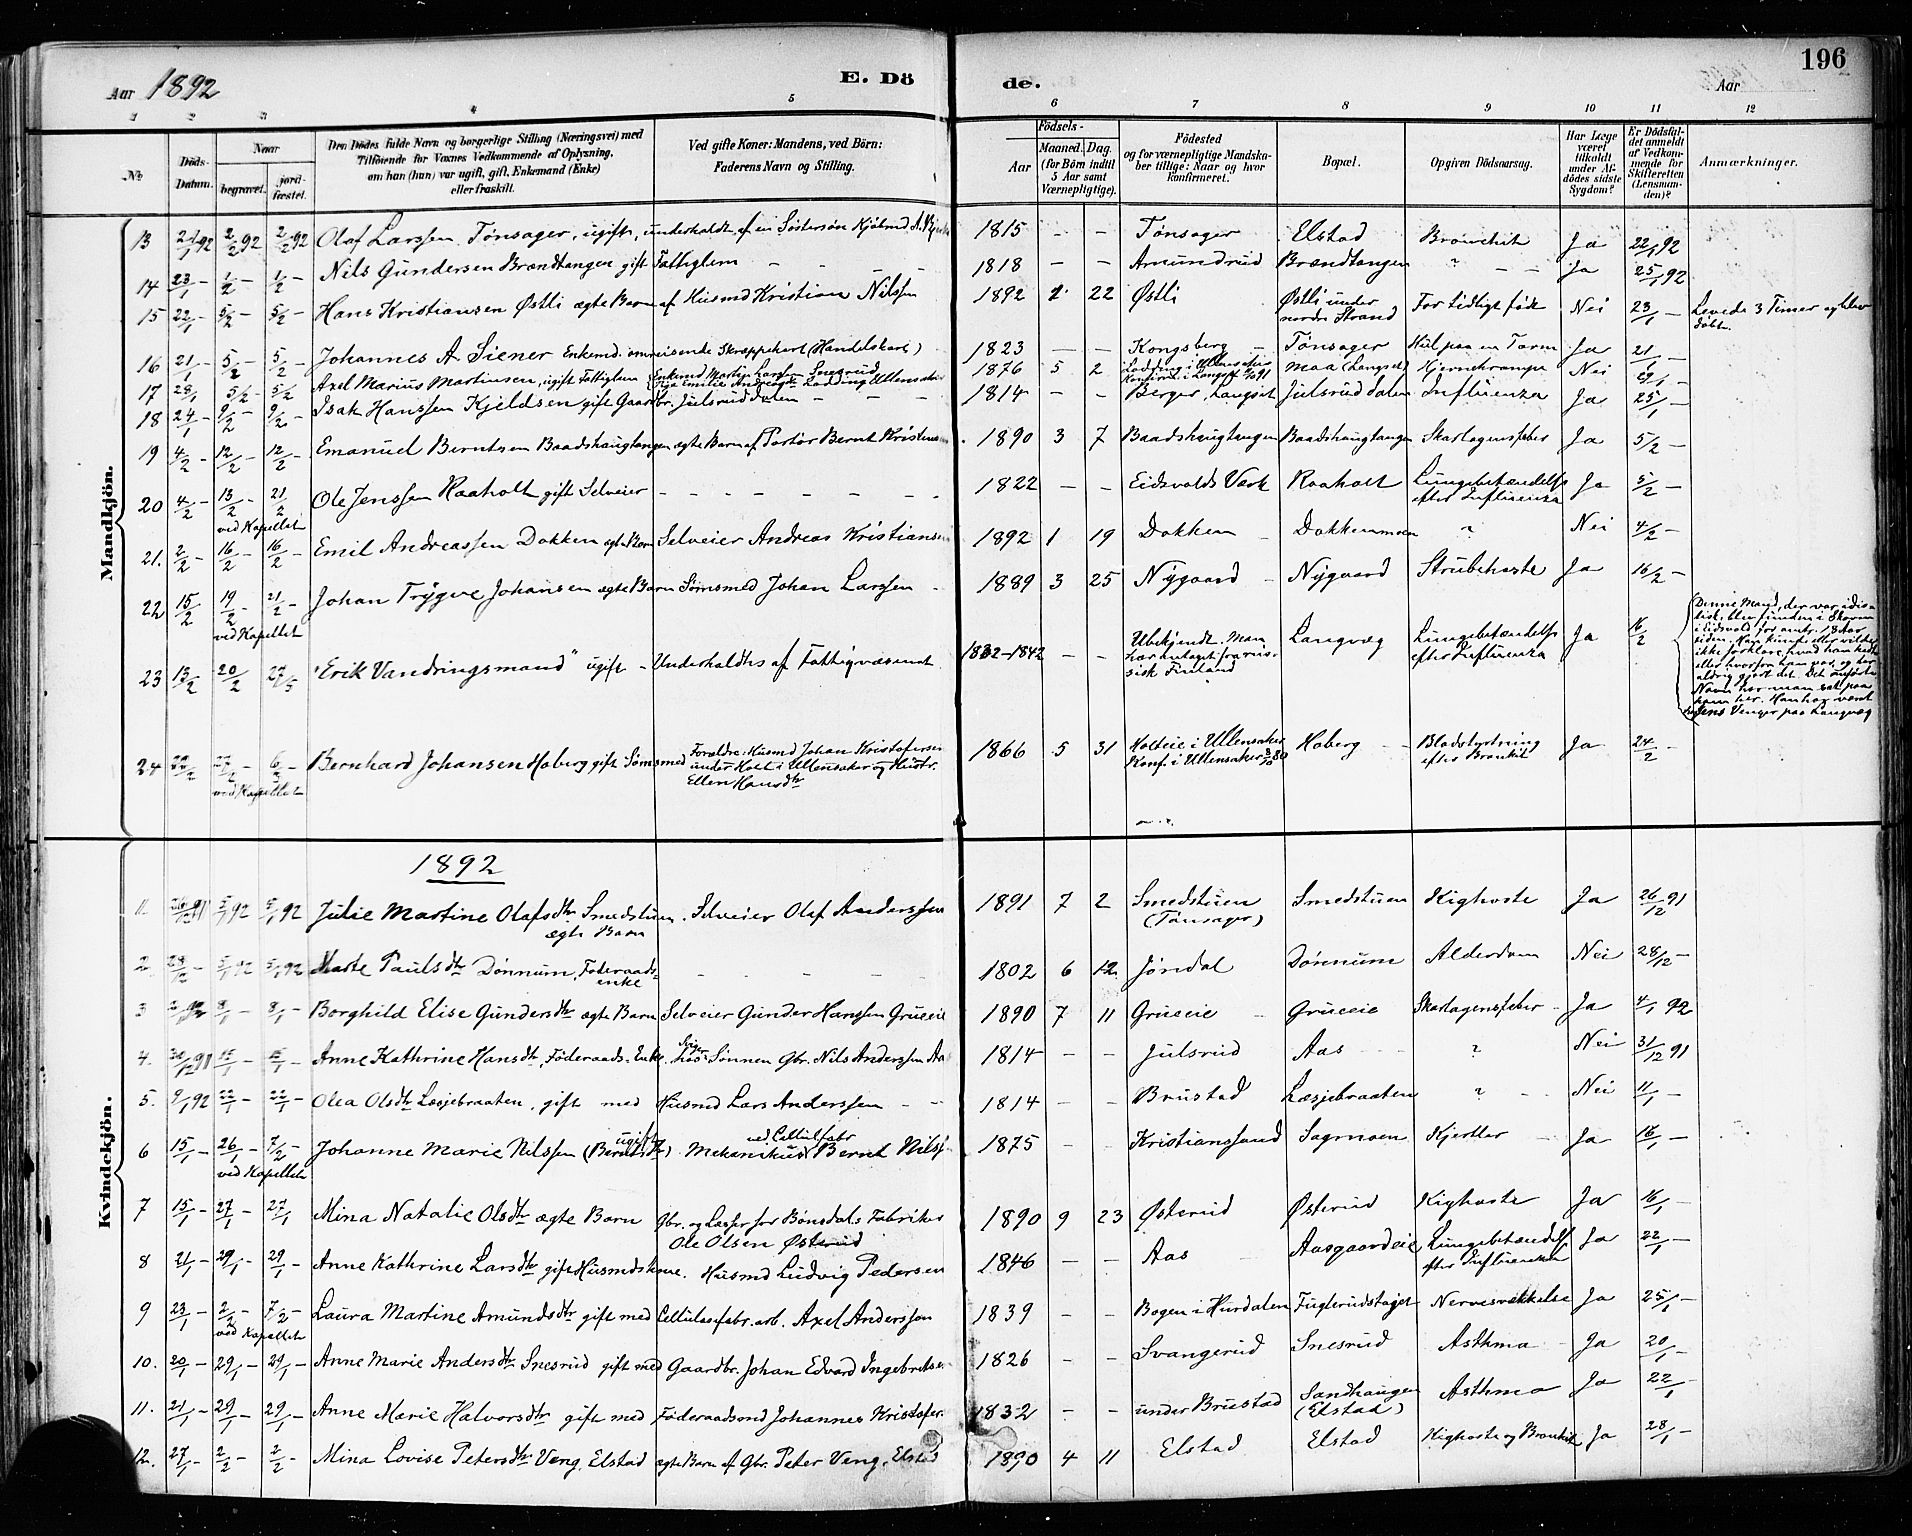 196
Aar 1892 E. Dö de. Aar
1 2 3 4 5 6 7 8 9 10 11 12
No Döds-Datum. Naar begravet. jord-fæstet. Den Dödes fulde Navn og borgerlige Stilling (Næringsvei) med Tilföiende for Voxnes Vedkommende af Oplysning, om han (hun) var ugift, gift, Enkemand (Enke) eller fraskilt. Ved gifte Koner: Mandens, ved Börn: Faderens Navn og Stilling. Födsels- Aar Maaned. Dag. (for Börn indtil 5 Aar samt Værnepligtige). Födested og for værnepligtige Mandskaber tillige: Naar og hvor konfirmeret. Bopæl. Opgiven Dödsaarsag. Har Læge været tilkaldt under Afdödes sidste Sygdom? Er Dödsfaldet anmeldt af Vedkommende for Skifteretten (Lensmanden)? Anmærkninger.
Mandkjön.
13 21/1 92 2/2 92 2/2 92 Olaf Larssen Tønsager, ugift, underholdt af en Søstersøn 1815 - - Tønsager Elstad Bronchit Ja 22/1 92
14 23/1 - 1/2 - 1/2 - Nils Gundersen Brændtangen gift Fattiglem - - - 1818 - - Amundrud Brændtangen " - - Ja 25/1 92
15 22/1 - 5/2 - 5/2 - Hans Kristiansen Østli ægte Barn af Husmd Kristian Nilssen 1892 1 22 Østli Østli under nordre Strand For tidligt født Nei 23/1 - Levede 3 Timer og blev døbt.
16 21/1 - 5/2 - 5/2 - Johannes A. Siener Enkemd. omreisende Skræppekarl (Handelskarl) 1823 - - Kongsberg - Tønsager Hul paa en Tarm Ja 21/1 -
17 28/1 - 5/2 - 5/2 Axel Marius Martinsen, ugift Fattiglem Enkemd Martin Larssen 1876 5 2 i Ullensaker Konfirm. i Langset Maa (Langset) Hjernekrampe Nei 29/1 -
18 24/1 - 9/2 - 9/2 - Isak Hanssen Kjeldsen gift Gaardbr. Julsruddalen - - - 1814 - - Berger, Langset Julsruddalen Influenza Ja 25/1 -
19 4/2 - 12/2 - 12/2 - Emanuel Berntsen Baadshaugtangen ægte Barn af Portør Bernt 1890 3 7 Baadshaugtangen Baadshaugtangen Skarlagensfeber Ja 5/2 -
20 4/2 - 13/2 - 21/2 Ole Jenssen Raaholt gift Selveier - - - - - - - 1822 - - Eidsvolds Værk Raaholt Lungebetændelse efter Influenza Ja 5/2 -
ved Kapellet
21. 2/2 - 16/2 - 16/2 - Emil Andreassen Dokken ægte Barn Selveier Andreas Kristiansen 1892 1 19 Dokken - Dokkenmoen ? Nei 4/2 -
22 15/2 19/2 - 21/2 - Johan Trygve Johansen ægte Barn Sømsmed Johan Larssen - 1889 3 25 Nygaard - Nygaard Strubehoste Ja 16/2 -
ved Kapellet
23 13/2 20/2 27/3 "Erik Vandringsmand" ugift - Underholdtes af Fattigvæsenet 1832-1842 - - Ubekjendt. Man har antaget fra russisk Finland Langvæg Lungebetændelse efter Influenza Ja 16/2 Denne Mand, der var idiotisk, blev funden i Skoven i Eidsvold for omtr. 13 Aar siden. Han kunde eller vilde ikke forklare, hvad han hedte eller hvorfra han var, og har aldrig gjort det. Det anførte Navn har man sat paa ham her. Han har været hos Jens Venger paa Langvæg
24 22/2 27/2 - 6/3 - Bernhard Johansen Hoberg gift Sømsmed Forældre: Husmd Johan Kristofersen under Holt i Ullensaker og Hustr. Ellen Hansdtr 1866 5 31 Holteie i Ullensaker Konf. i Ullensaker Hoberg - - Blodstyrtning efter Bronkit Ja 24/2 -
ved Kapellet
Kvindekjön.
1892
1. 26/12 91 5/1 92 5/1 92 Julie Martine Olafsdtr Smedstuen ægte Barn Selveier Olaf Anderssen 1891 7 2 Smedstuen (Tønsager) Smedstuen Kighoste Ja 26/12 91
2. 23/12 - 5/1 92 5/1 92 Marte Paulsdtr Dønnum, Føderaadsenke - - - 1802 6 12 Jøndal Dønnum Alderdom Nei 28/12 -
3 2/1 92 8/1 - 8/1 - Borghild Elise Gundersdtr ægte Barn Selveier Gunder Hanssen Grueeie 1890 7 11 Grueeie - Grueeie Skarlagensfeber - Ja 4/1 92
4. 30/12 91 15/1 - 15/1 - Anne Kathrine Hansdtr, Føderaads-Enke. hos Svigersønnen Gbr. Nils Anderssen Aas 1814 - - Julsrud Aas ? Nei 31/12 91
5. 9/1 92 22/1 - 22/1 - Olea Olsdtr Læsjebraaten, gift med Husmd Lars Anderssen - - 1814 - - Brustad Læsjebraaten ? - Nei 11/1 -
6 15/1 - 26/1 - 7/2 - Johanne Marie Nilssen (Berntsdtr) ugift Mekanikus ved Cellulfabr Bernt Nilss 1875 - Kristianssand Sagmoen Hjertler - Ja 16/1 -
ved Kapellet
7 15/1 - 27/1 - 27/1 Mina Natalie Olsdtr ægte Barn Gbr. og Lasser for Bønsdals Fabriker Ole Olsen Østerud 1890 9 23 Østerud Østerud Kighoste Ja 16/1 -
8 21/1 - 29/1 - 29/1 - Anne Kathrine Larsdtr gift Husmdskone. Husmd Ludvig Pedersen 1846 - - Aas Aasgaardeie Lungebetændelse efter Influenza Ja 22/1 -
9 23/1 - 2/2 - 7/2 - Laura Martine Amundsdtr gift med Cellulosefabr.arb. Axel Anderssen 1839 - - Bogen i Hurdalen Fuglerudstajet Nervesvækkelse Ja 25/1 -
ved Kapellet
10. 20/1 - 29/1 - 29/1 - Anne Marie Andersdtr. Snesrud gift med Gaardbr. Johan Edvard Ingebretsen 1826 - - Svangerud Snesrud Asthma - Ja 20/1 -
11. 21/1 - 29/1 - 29/1 - Anne Marie Halvorsdtr gift med Føderaadsmd Johannes Kristofer 1832 - - under Brustad Sandhaugen (Elstad) Asthma Ja 22/1 -
12. 27/1 - 2/2 - 2/2 - Mina Lovise Petersdtr Veng, Elstad ægte Barn af Gbr. Peter Veng, Elstad 1890 4 11 Elstad Elstad Kighoste og Bronkit Ja 28/1 -